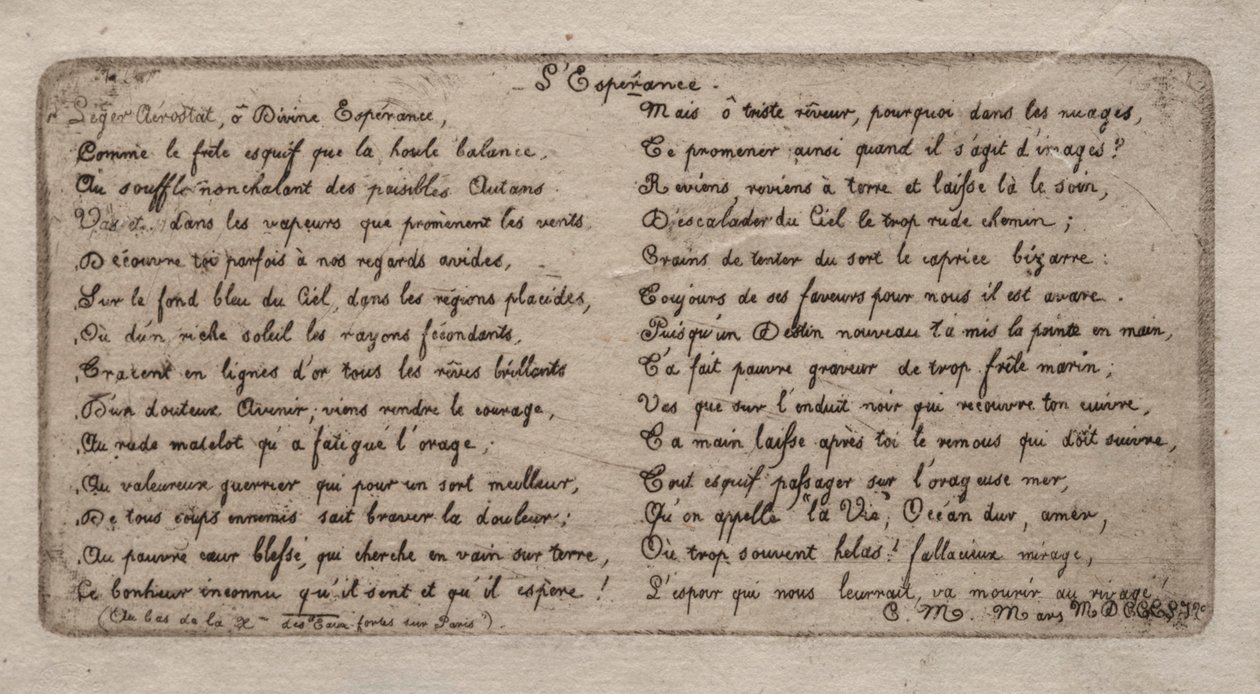 L'Espérance.
Léger Aérostat, ô Divine Espérance,
Comme le frêle esquif que la houle balance,
Au souffle nonchalant des paisibles Autans
Vas et.. dans les vapeurs que promènent les vents
Découvre toi parfois à nos regards avides,
Sur le fond bleu du Ciel, dans les régions placides,
Où d'un riche soleil les rayons fécondants,
Tracent en lignes d'or tous les rêves brillants
D'un douteux Avenir; viens rendre le courage,
Au rude matelot qu'a fatigué l'orage;
Au valeureux guerrier qui pour un sort meilleur,
De tous coups ennemis sait braver la douleur;
Au pauvre cœur blessé, qui cherche en vain sur terre,
Le bonheur inconnu qu'il sent et qu'il espère!
(Au bas de la Xme des "Eaux fortes sur Paris").
Mais ô triste rêveur, pourquoi dans les nuages,
Te promener ainsi quand il s'agit d'images?
Reviens, reviens à terre et laisse là le soin,
D'escalader du Ciel le trop rude chemin;
Crains de tenter du sort le caprice bizarre:
Toujours de ses faveurs pour nous il est avare.
Puisqu'un Destin nouveau t'a mis la pointe en main,
T'a fait pauvre graveur de trop frêle marin;
Vas que sur l'enduit noir qui recouvre ton cuivre,
Ta main laisse après toi le remous qui doit suivre,
Tout esquif passager sur l'orageuse mer,
Qu'on appelle "la Vie", Océan dur, amer,
Où trop souvent helas! fallacieux mirage,
L'espoir qui nous leurrait, va mourir au rivage!
C. M. Mars